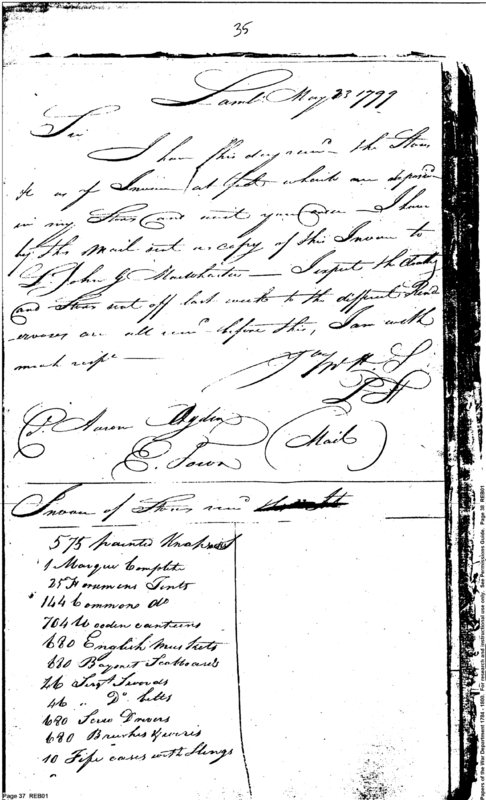 35
Lambt. May 23 1799
Sir
I have this day recd. the Stores
&c as pr Invoice at foot which are deposd.
in my Store and wait your order — I have
by this mail sent a copy of this Invoice to
Lt. John G Mackwhorter — I expect the Clothg
and Stores sent off last week to the different Rend
ervoces are all recd. before this, I am with
much respt —
P H
Aaron Ogden
E. Town
(Mail)
Invoice of Stores recd
575 painted Knapsacks
1 Marque Complete
25 Horsemens Tents
144 Common do
704 Wooden canteens
680 English muskets
680 Bayonet Scabboards
46 Sergt. Swords
46 " Do belts
680 Screw Drivers
680 Brushes & wires
10 Fife cases with Slings
Page 37 REB01
Papers of the War Department 1784 - 1800. For research and instructional use only. See Permissions Guide. Page 38 REB01